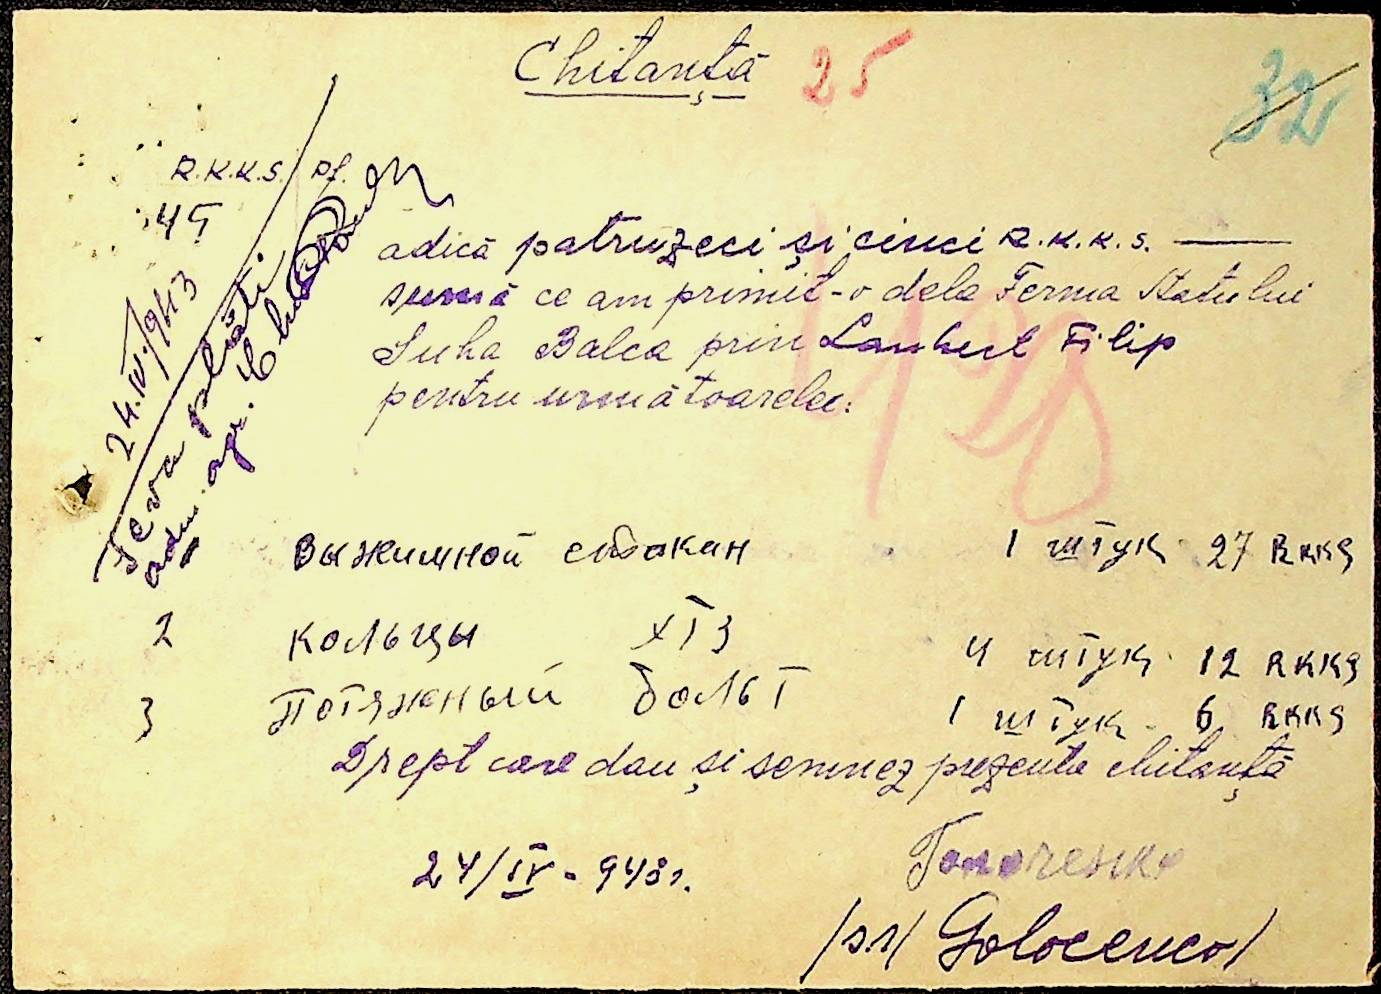 Chitanță 25
32
R.K.K.S. pf.
45
adică patruzeci și cinci R.K.K.S. —
sumă ce am primit-o dela Ferma Statului
Suha Balca prin Lambert Filip
pentru următoarele:
24.IV.1943
Se va plăti
adm. agr.
выжимной стакан 1 штук 27 RKKS
2 кольцы ХТЗ 4 штук 12 RKKS
3 потяжный болт 1 штук - 6 RKKS
Drept care dau și semnez prezenta chitanță
24/IV - 943 г.
/ss/ Golocenco/